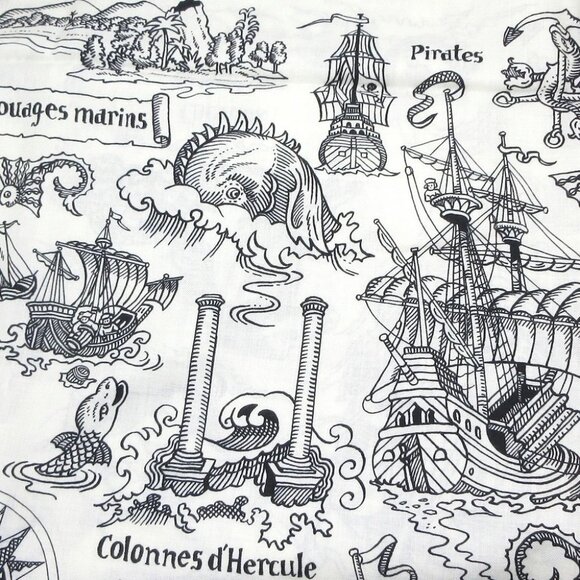 Pirates
ouages marins
Colonnes d'Hercule